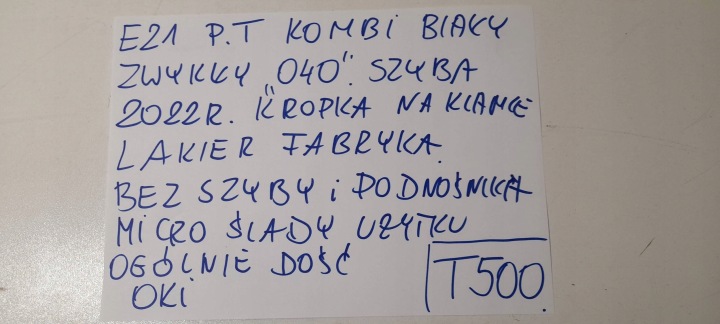 E21 P.T KOMBI BIAŁY
ZWYKŁY „040”. SZYBA
2022R. KROPKA NA KLAMCE
LAKIER FABRYKA.
BEZ SZYBY i PODNOŚNIKA
MICRO ŚLADY UŻYTKU
OGÓLNIE DOŚĆ
OKI
T500.